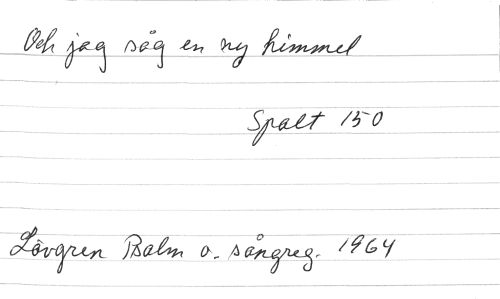 Och jag såg en ny himmel
Spalt 150
Lövgren Psalm o. sångreg. 1964